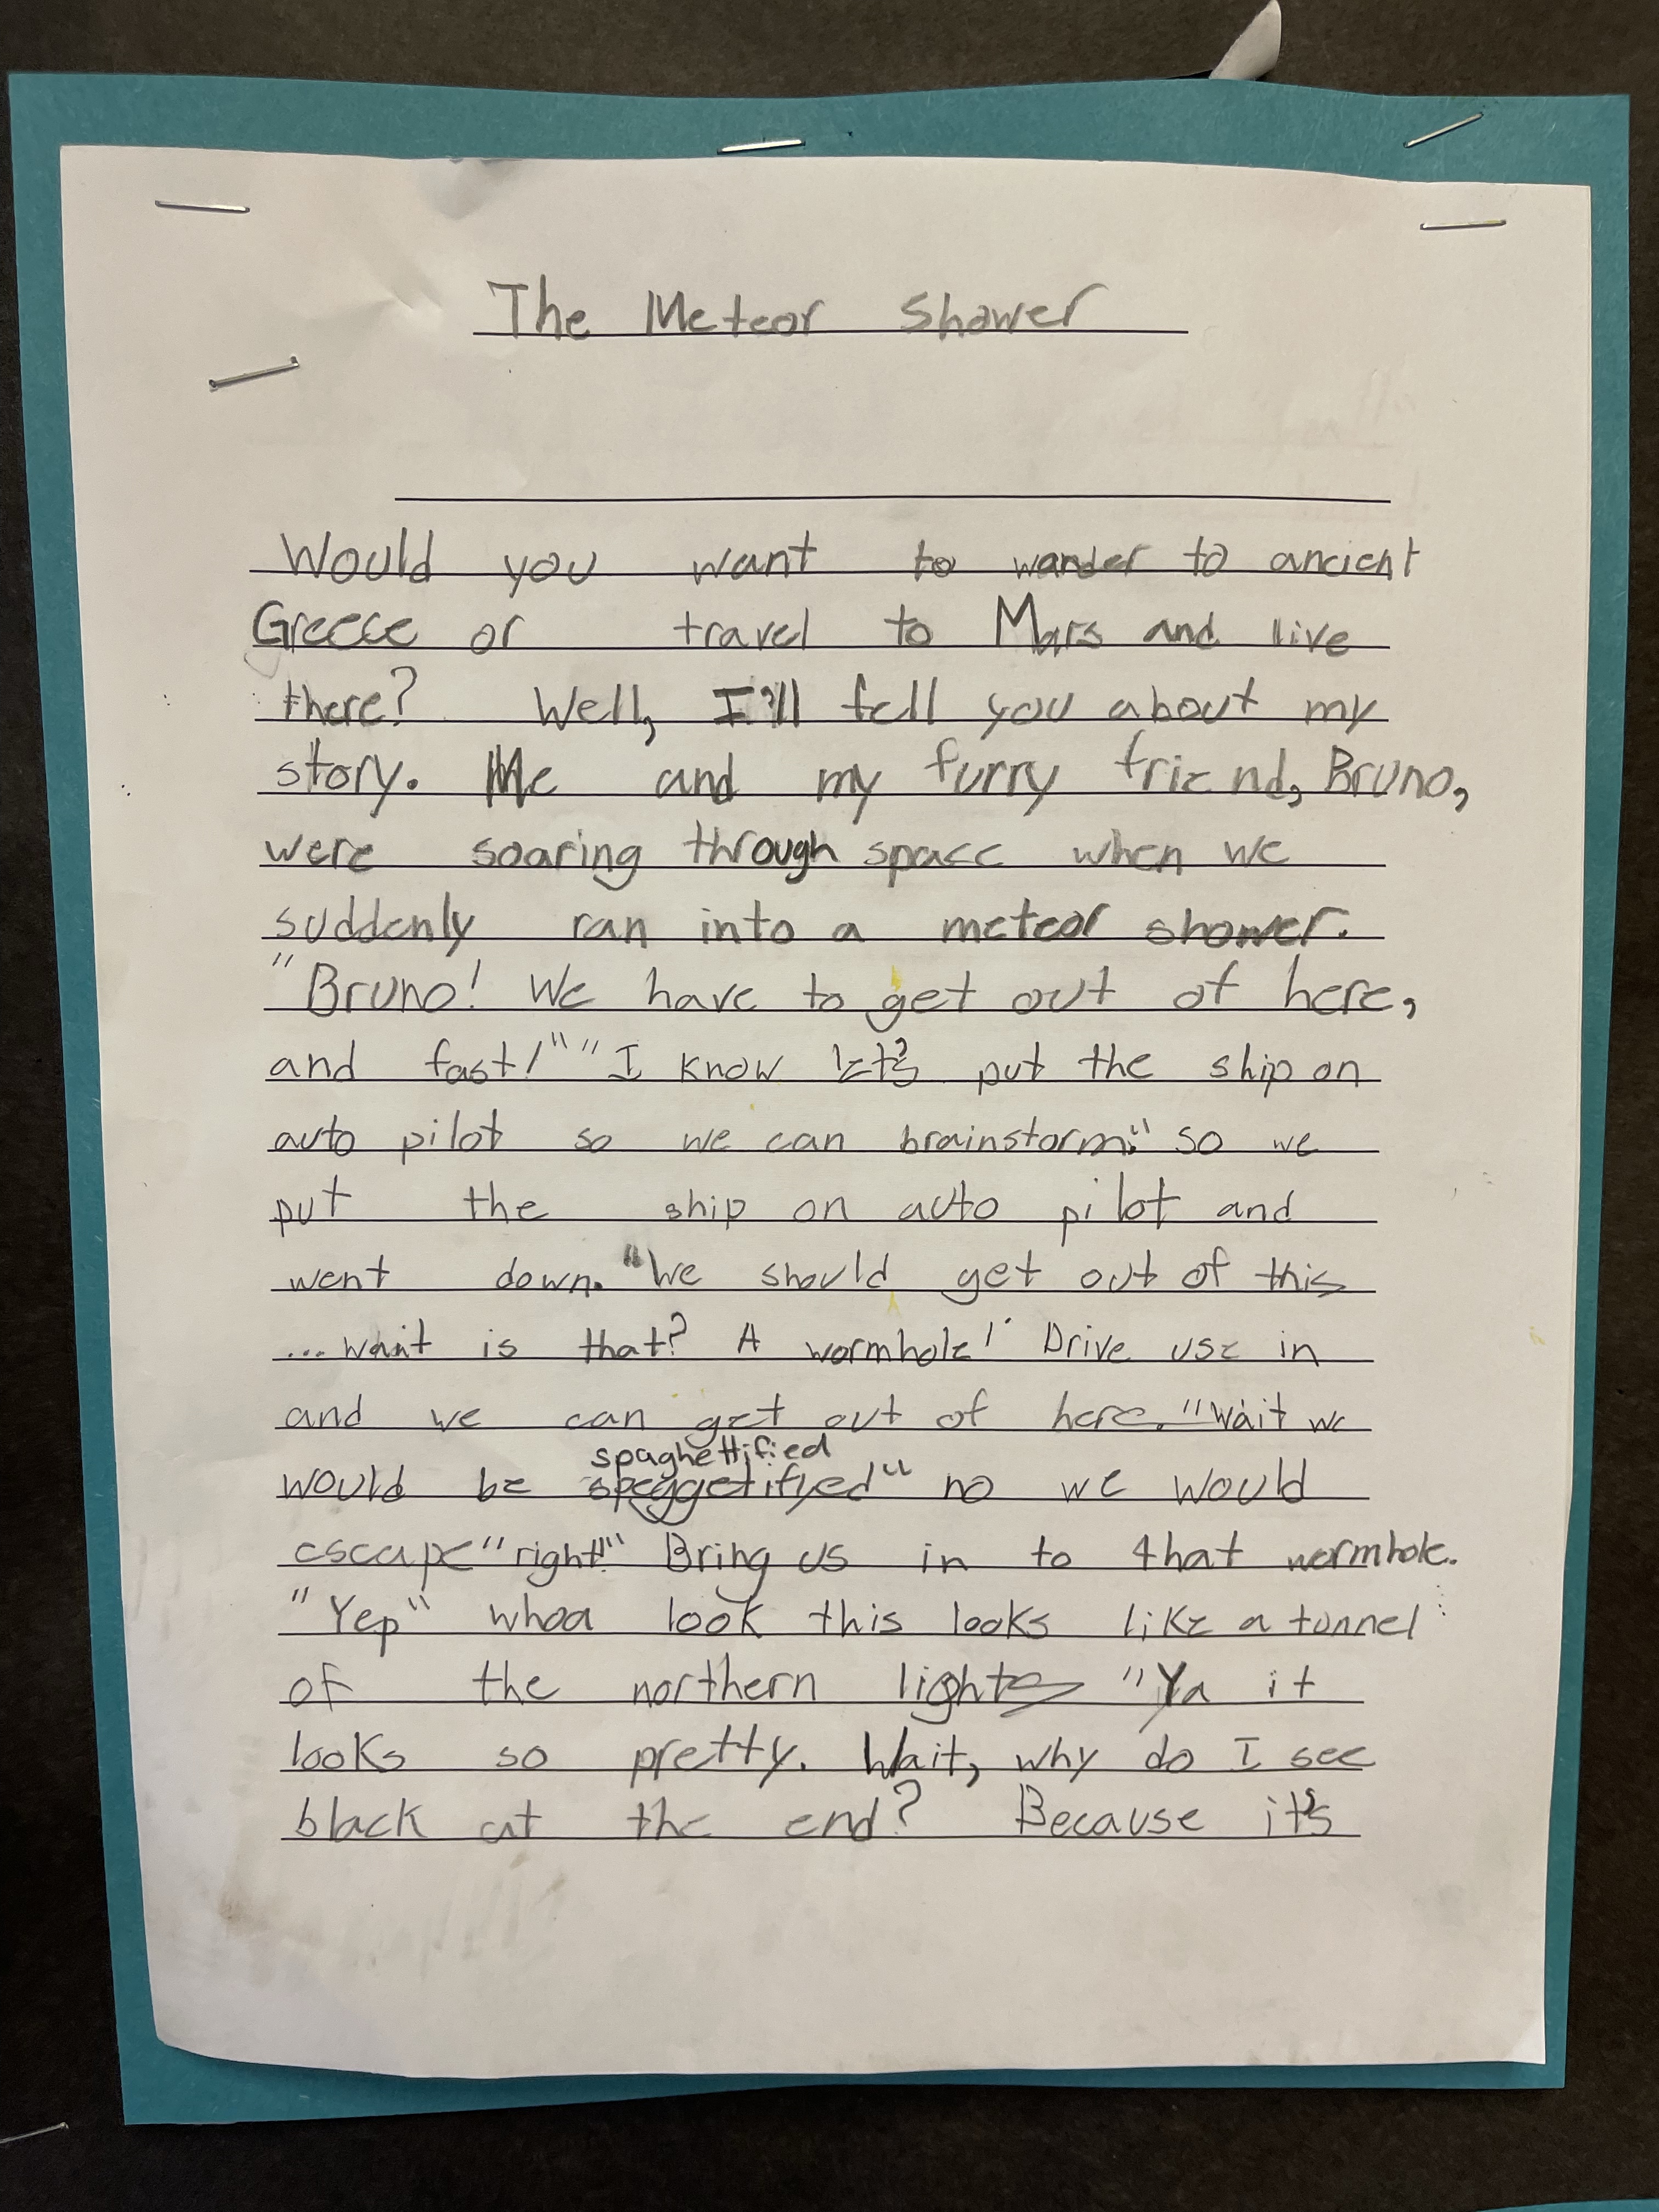 The Meteor Shower
Would you want to wander to ancient
Greece or travel to Mars and live
there? Well, I'll tell you about my
story. Me and my furry friend, Bruno,
were soaring through space when we
suddenly ran into a meteor shower.
"Bruno! We have to get out of here,
and fast!" "I know let's put the ship on
auto pilot so we can brainstorm." so we
put the ship on auto pilot and
went down. "We should get out of this
... wait is that? A wormhole! Drive use in
and we can get out of here. "Wait we
spaghettified
would be speggetifyed" no we would
escape "right!" Bring us in to that wormhole.
"Yep" whoa look this looks like a tunnel
of the northern lights "Ya it
looks so pretty. Wait, why do I see
black at the end? Because it's